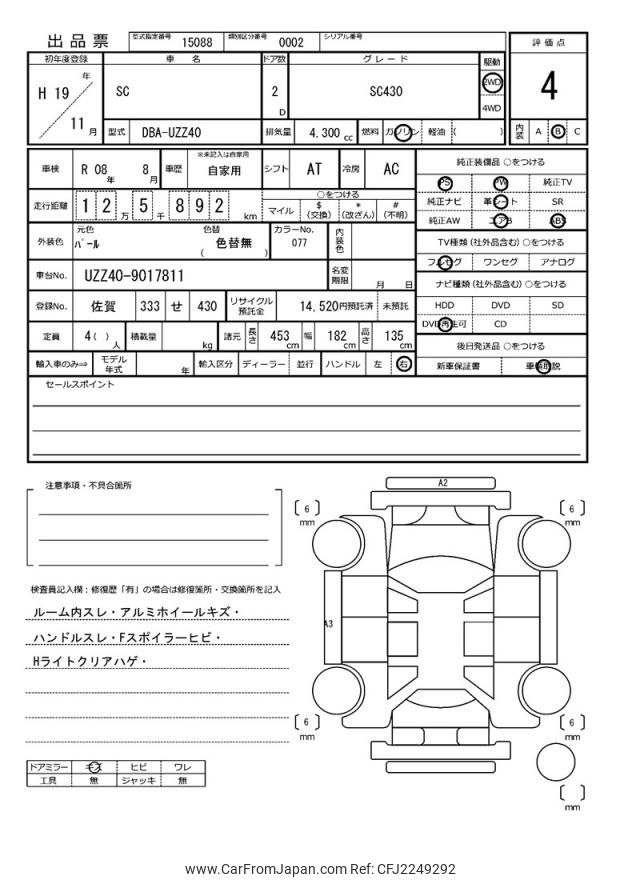 出品票
型式指定番号 15088 類別区分番号 0002 シリアル番号
初年度登録 車名 ドア数 グレード 駆動
H 19 年
11 月
SC
2 D
SC430
2WD
4WD
型式 DBA-UZZ40 排気量 4,300 cc 燃料 ガソリン 軽油 ( )
評価点
4
内装 A B C
車検 R 08 年 8 月 車歴 ※未記入は自家用 自家用 シフト AT 冷房 AC
走行距離 1 2 万 5 千 8 9 2 km
○をつける
マイル $ (交換) * (改ざん) # (不明)
外装色 元色 パール 色替 ( 色替無 ) カラーNo. 077 内装色
車台No. UZZ40-9017811 名変期限 月 日
登録No. 佐賀 333 せ 430 リサイクル預託金 14,520円預託済 未預託
定員 4( ) 人 積載量 kg 諸元 長さ 453 cm 幅 182 cm 高さ 135 cm
輸入車のみ⇨ モデル年式 年 輸入区分 ディーラー 並行 ハンドル 左 右
純正装備品 ○をつける
PS PW 純正TV
純正ナビ 革シート SR
純正AW エアB ABS
TV種類(社外品含む) ○をつける
フルセグ ワンセグ アナログ
ナビ種類(社外品含む) ○をつける
HDD DVD SD
DVD再生可 CD
後日発送品 ○をつける
新車保証書 車輌取説
セールスポイント
注意事項・不具合箇所
検査員記入欄:修復歴「有」の場合は修復箇所・交換箇所を記入
ルーム内スレ・アルミホイールキズ・
ハンドルスレ・Fスポイラーヒビ・
Hライトクリアハゲ・
ドアミラー キズ ヒビ ワレ
工具 無 ジャッキ 無
A2
6 mm
6 mm
A3
6 mm
6 mm
mm
www.CarFromJapan.com Ref: CFJ2249292